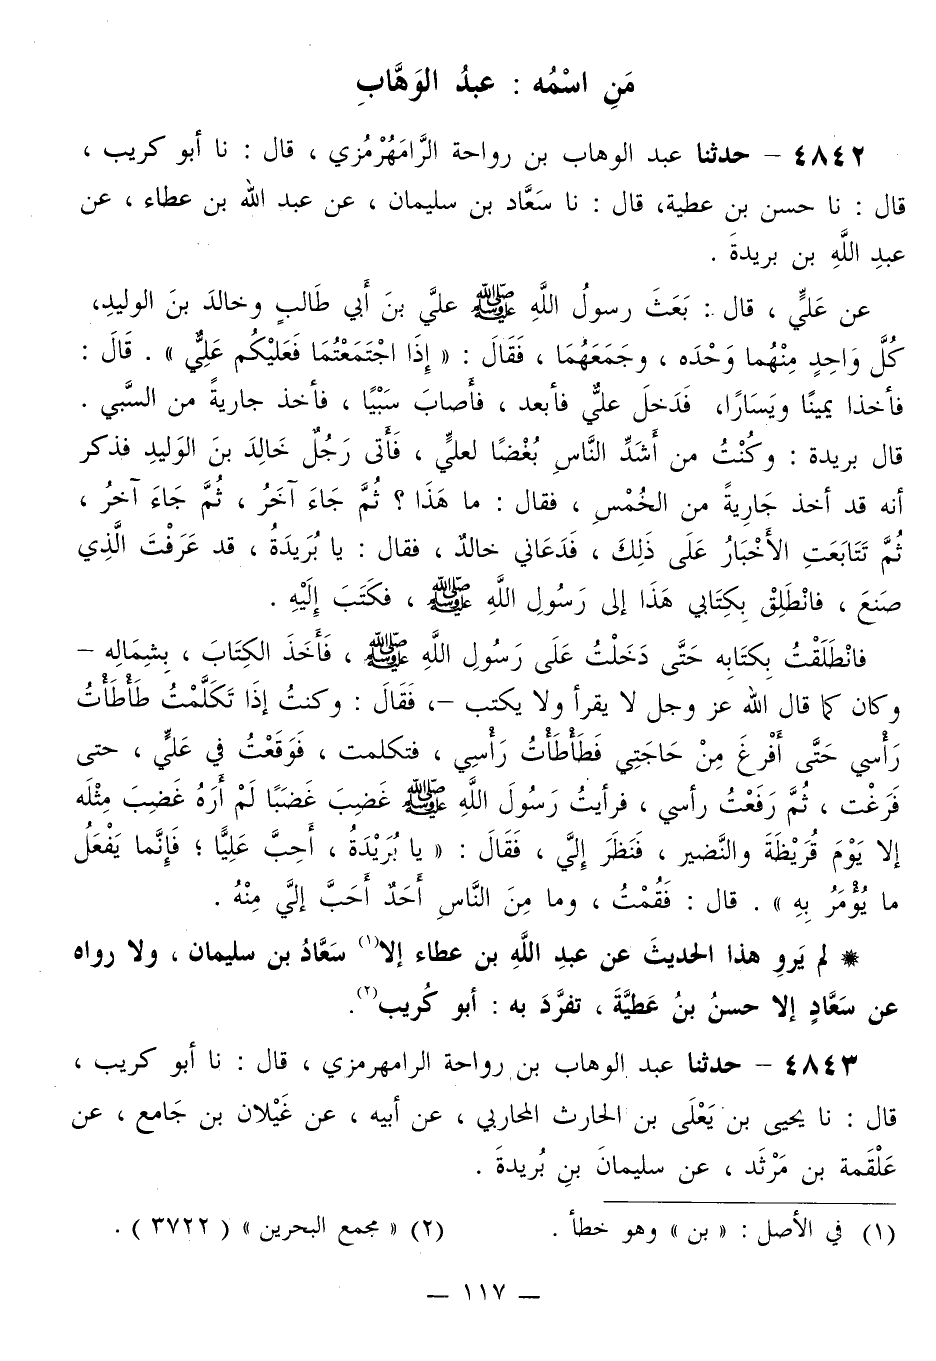 مَنِ اسْمُه : عبدُ الوَهَّابِ
٤٨٤٢ – حدثنا عبد الوهاب بن رواحة الرَّامَهُرْمُزي ، قال : نا أبو كريب ،
قال : نا حسن بن عطية، قال : نا سَعَّاد بن سليمان ، عن عبد الله بن عطاء ، عن
عبدِ اللَّهِ بن بريدةَ .
عن عَليٍّ ، قال : بَعَثَ رسولُ اللَّهِ ﷺ عليَّ بنَ أَبي طَالبٍ وخالدَ بنَ الوليدِ،
كُلَّ وَاحِدٍ مِنْهُما وَحْدَه ، وجَمَعَهُمَا ، فَقَالَ : « إِذَا اجْتَمَعْتُمَا فَعَليْكُم عَليٌّ » . قَالَ :
فأخذا يمينًا ويَسَارًا، فَدَخلَ عليٌّ فأبعد ، فأَصابَ سَبْيًا ، فأخذ جاريةً من السَّبي .
قال بريدة : وكُنْتُ من أَشَدِّ النَّاسِ بُغْضًا لعليٍّ ، فَأَتى رَجُلٌ خَالِدَ بنَ الوَليدِ فذكر
أنه قد أخذ جَارِيةً من الخُمْسِ ، فقال : ما هَذَا ؟ ثُمَّ جَاءَ آخَرُ ، ثُمَّ جَاءَ آخرُ ،
ثُمَّ تَتَابَعَتِ الأَخْبَارُ عَلَى ذَلِكَ ، فَدَعَاني خالدٌ ، فقال : يا بُرَيدَةُ ، قد عَرَفْتَ الَّذِي
صَنعَ ، فانْطَلِقْ بِكِتَابي هَذَا إلى رَسُولِ اللَّهِ ﷺ ، فكَتَبَ إِلَيْهِ .
فانْطَلَقْتُ بِكتَابِه حَتَّى دَخَلْتُ عَلَى رَسُولِ اللَّهِ ﷺ ، فَأَخَذَ الكِتَابَ ، بِشِمَالِه –
وكان كما قال الله عز وجل لا يقرأ ولا يكتب –، فَقَالَ : وكنتُ إذَا تَكَلَّمْتُ طَأْطَأْتُ
رَأْسي حَتَّى أَفْرغَ مِنْ حَاجَتِي فَطَأْطَأْتُ رَأْسِي ، فتكلمت ، فَوَقَعْتُ في عَليٍّ ، حتى
فَرَغْت ، ثُمَّ رَفَعْتُ رأسي ، فرأيتُ رَسُولَ اللَّهِ ﷺ غَضِبَ غَضَبًا لَمْ أَرَهُ غَضِبَ مِثْلَه
إلا يَوْمَ قُرَيْظَةَ والنَّضير ، فَنَظَرَ إليَّ ، فَقَالَ : « يا بُرَيْدَةُ ، أَحِبَّ عَليًّا ؛ فَإِنَّما يَفْعَلُ
ما يُؤْمَرُ بِهِ » . قال : فَقُمْتُ ، وما مِنَ النَّاسِ أَحَدٌ أَحَبَّ إليَّ مِنْهُ .
* لم يَروِ هذا الحديثَ عن عبدِ اللَّهِ بن عطاء إلا(١) سَعَّادُ بن سليمان ، ولا رواه
عن سَعَّادٍ إلا حسنُ بنُ عَطيَّةَ ، تفرَّدَ به : أبو كُريب(٢).
٤٨٤٣ – حدثنا عبد الوهاب بن رواحة الرامهرمزي ، قال : نا أبو كريب ،
قال : نا يحيى بن يَعْلَى بن الحارث المحاربي ، عن أبيه ، عن غَيْلان بن جَامع ، عن
عَلْقَمة بن مَرْثَد ، عن سليمانَ بنِ بُريدةَ .
(١) في الأصل : « بن » وهو خطأ . (٢) « مجمع البحرين » ( ٣٧٢٢ ) .
– ١١٧ –